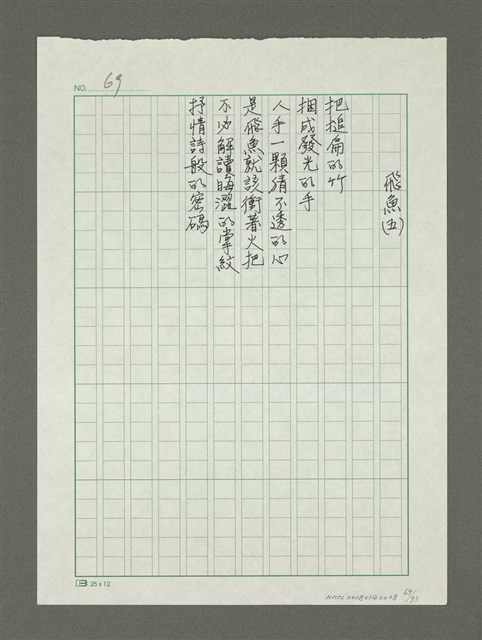 NO. 69
飛魚(五)
把搥扁的竹
捆成發光的手
人手一顆猜不透的心
是飛魚就該衝著火把
不必解讀晦澀的掌紋
抒情詩般的密碼
25 x 12
NMTL20180140008
69/93